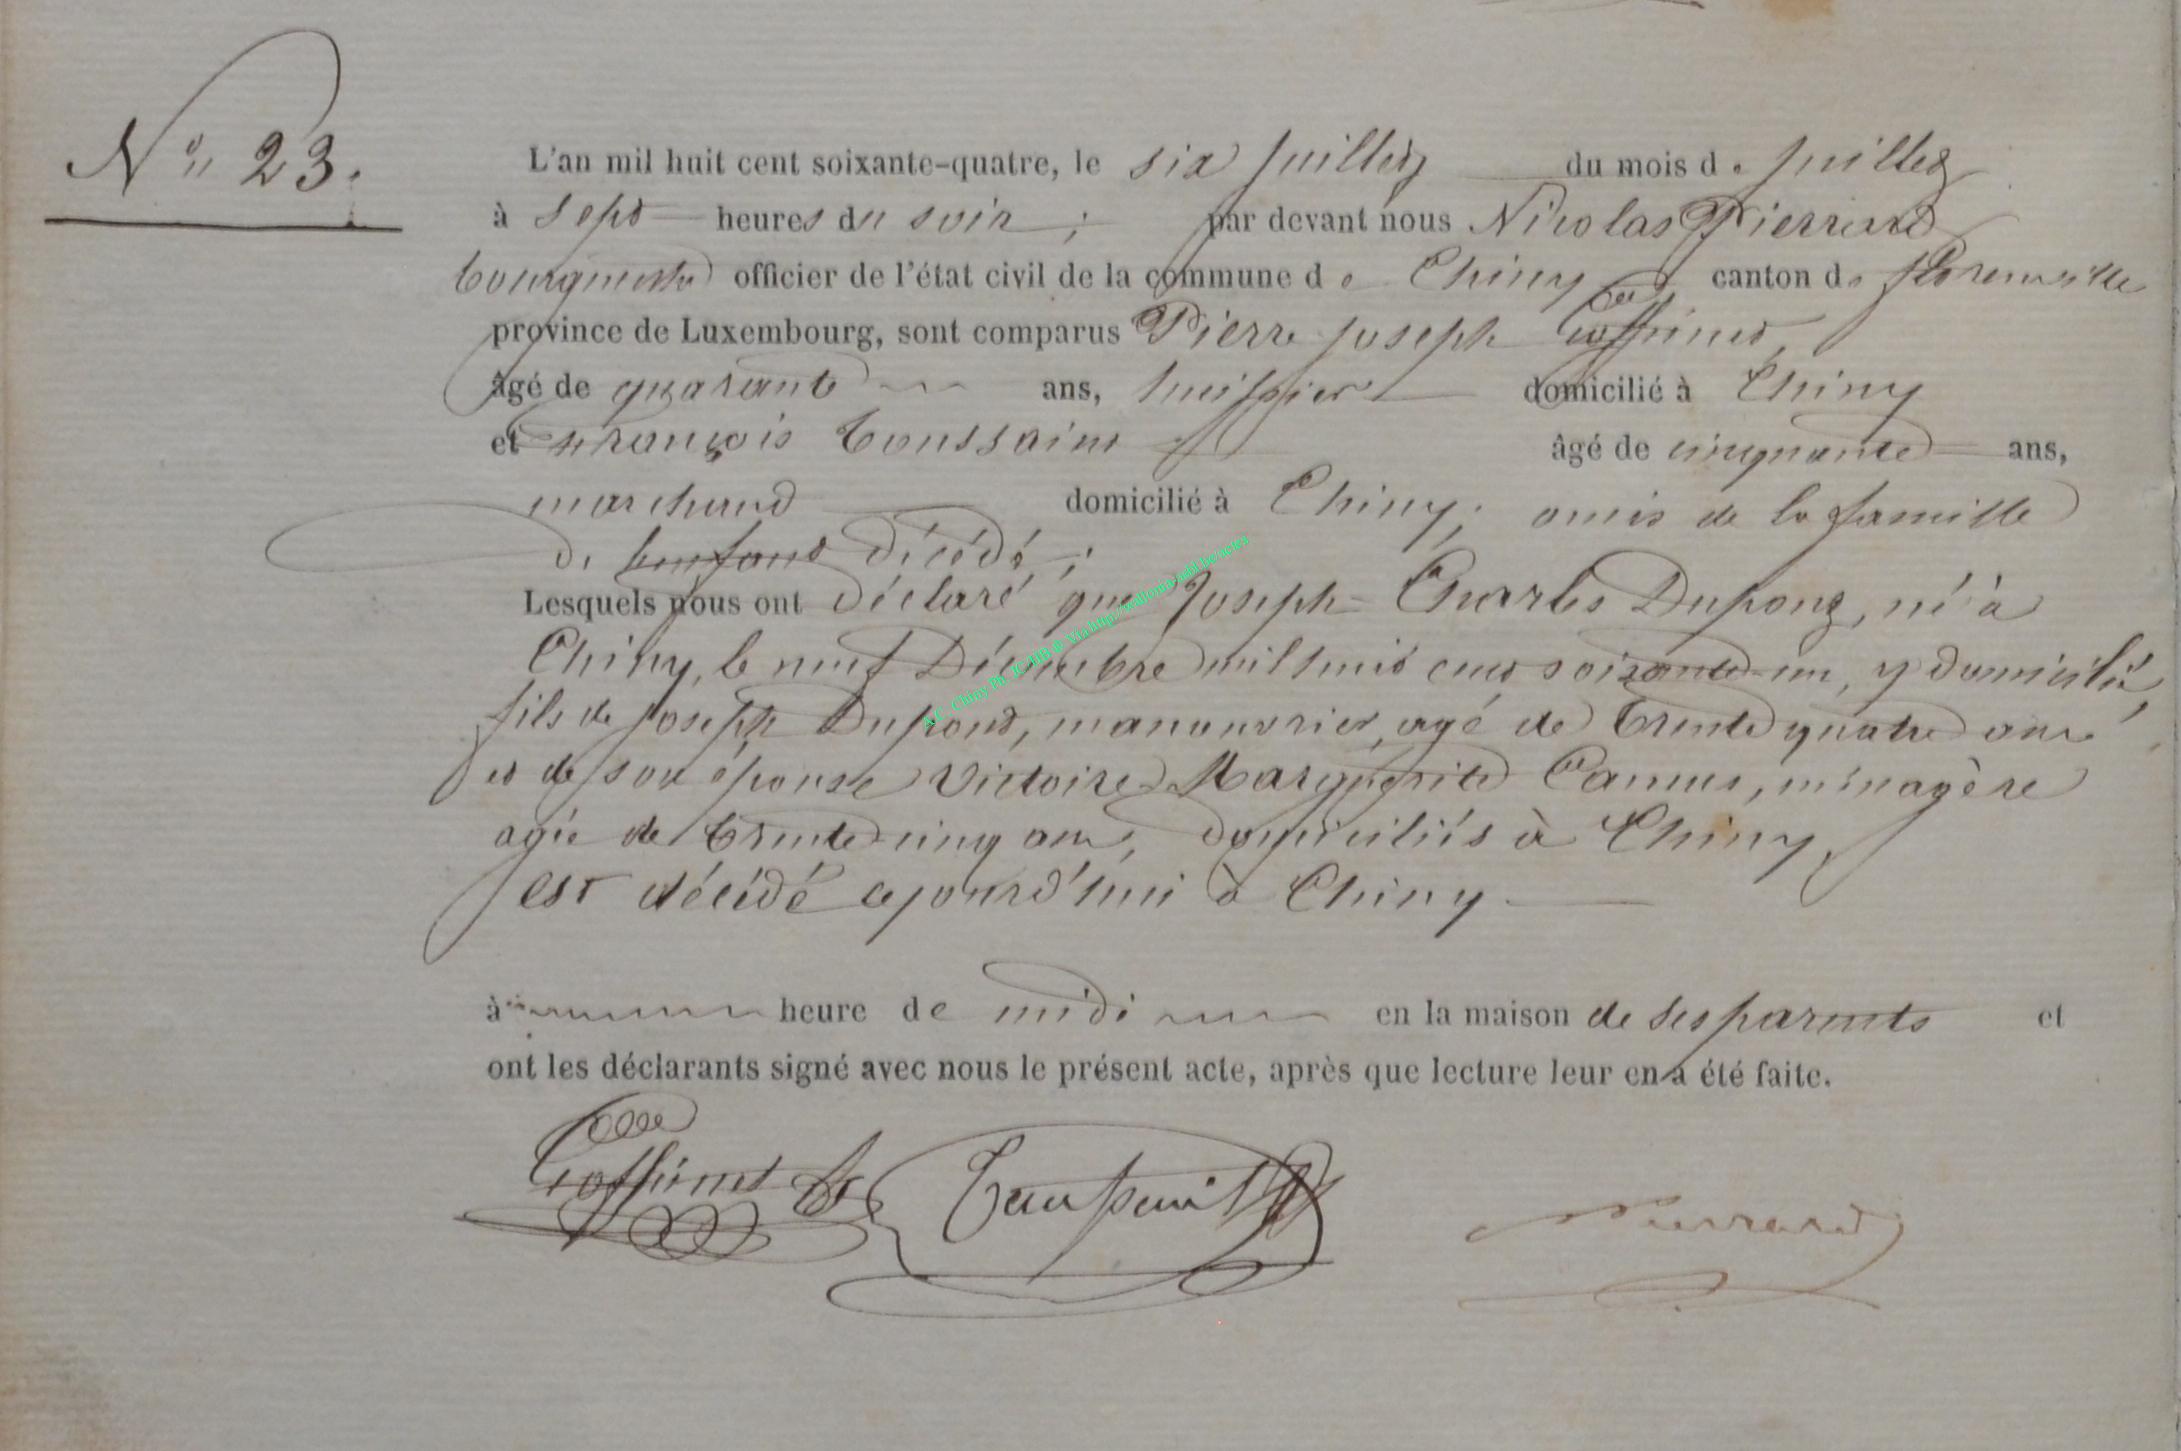 N° 23.
L'an mil huit cent soixante-quatre, le six juillet du mois de juillet
à sept heures du soir ; par devant nous Nicolas Pierrard
bourgmestre officier de l'état civil de la commune de Chiny canton de florenville
province de Luxembourg, sont comparus Pierre joseph Goffinet,
âgé de quarante ans, huissier domicilié à Chiny
et François Toussaint âgé de cinquante ans,
marchand domicilié à Chiny, amis de la famille
de l'enfant décédé ;
Lesquels nous ont déclaré que Joseph-Charles Dupont, né à
Chiny, le neuf Décembre mil huit cent soixante-un, y domicilié,
fils de joseph Dupont, manouvrier, agé de trente quatre ans
et de son épouse Victoire Marguerite Camus, ménagère
agée de trente-cinq ans, domiciliés à Chiny,
est décédé cejourd'hui à Chiny
à heure de midi en la maison de ses parents et
ont les déclarants signé avec nous le présent acte, après que lecture leur en a été faite.
Goffinet Toussaint Pierrard
A.C. Chiny Ph. JC-MB © Via http://wallonia-asbl.be/actes